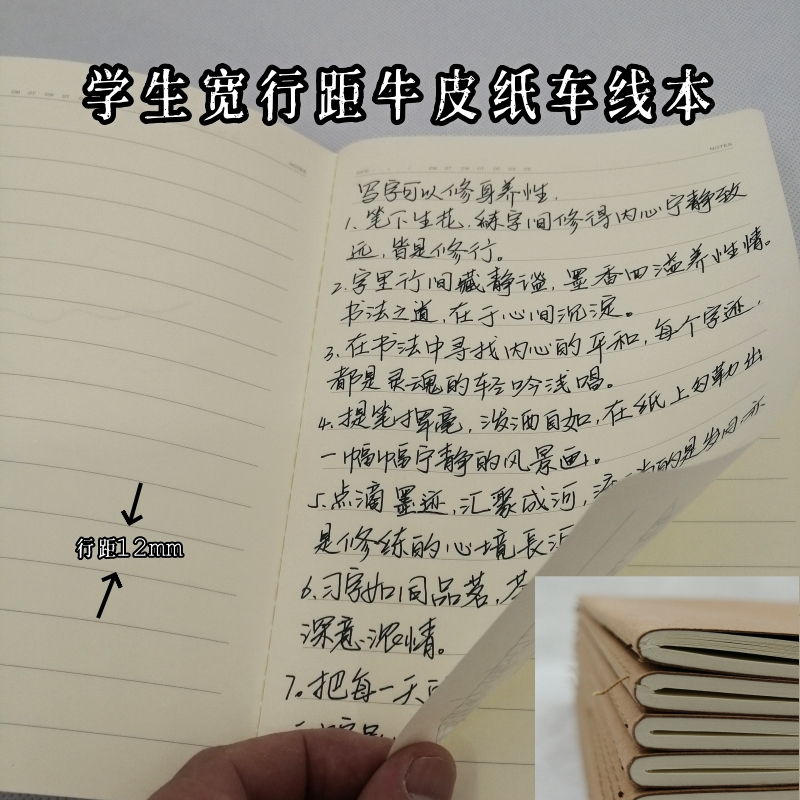 学生宽行距牛皮纸车线本
NOTES
写字可以修身养性.
1. 笔下生花, 练字间修得内心宁静致
远, 皆是修行。
2. 字里行间藏静谧, 墨香四溢养性情。
书法之道, 在于心间沉淀。
3. 在书法中寻找内心的平和, 每个字迹,
都是灵魂的轻吟浅唱。
4. 提笔挥毫, 泼洒自如, 在纸上勾勒出
一幅幅宁静的风景画。
5. 点滴墨迹, 汇聚成河, 流
是修练的心境長河
6. 习字如同品茗,
深意浓情。
7. 把每一天
行距12mm